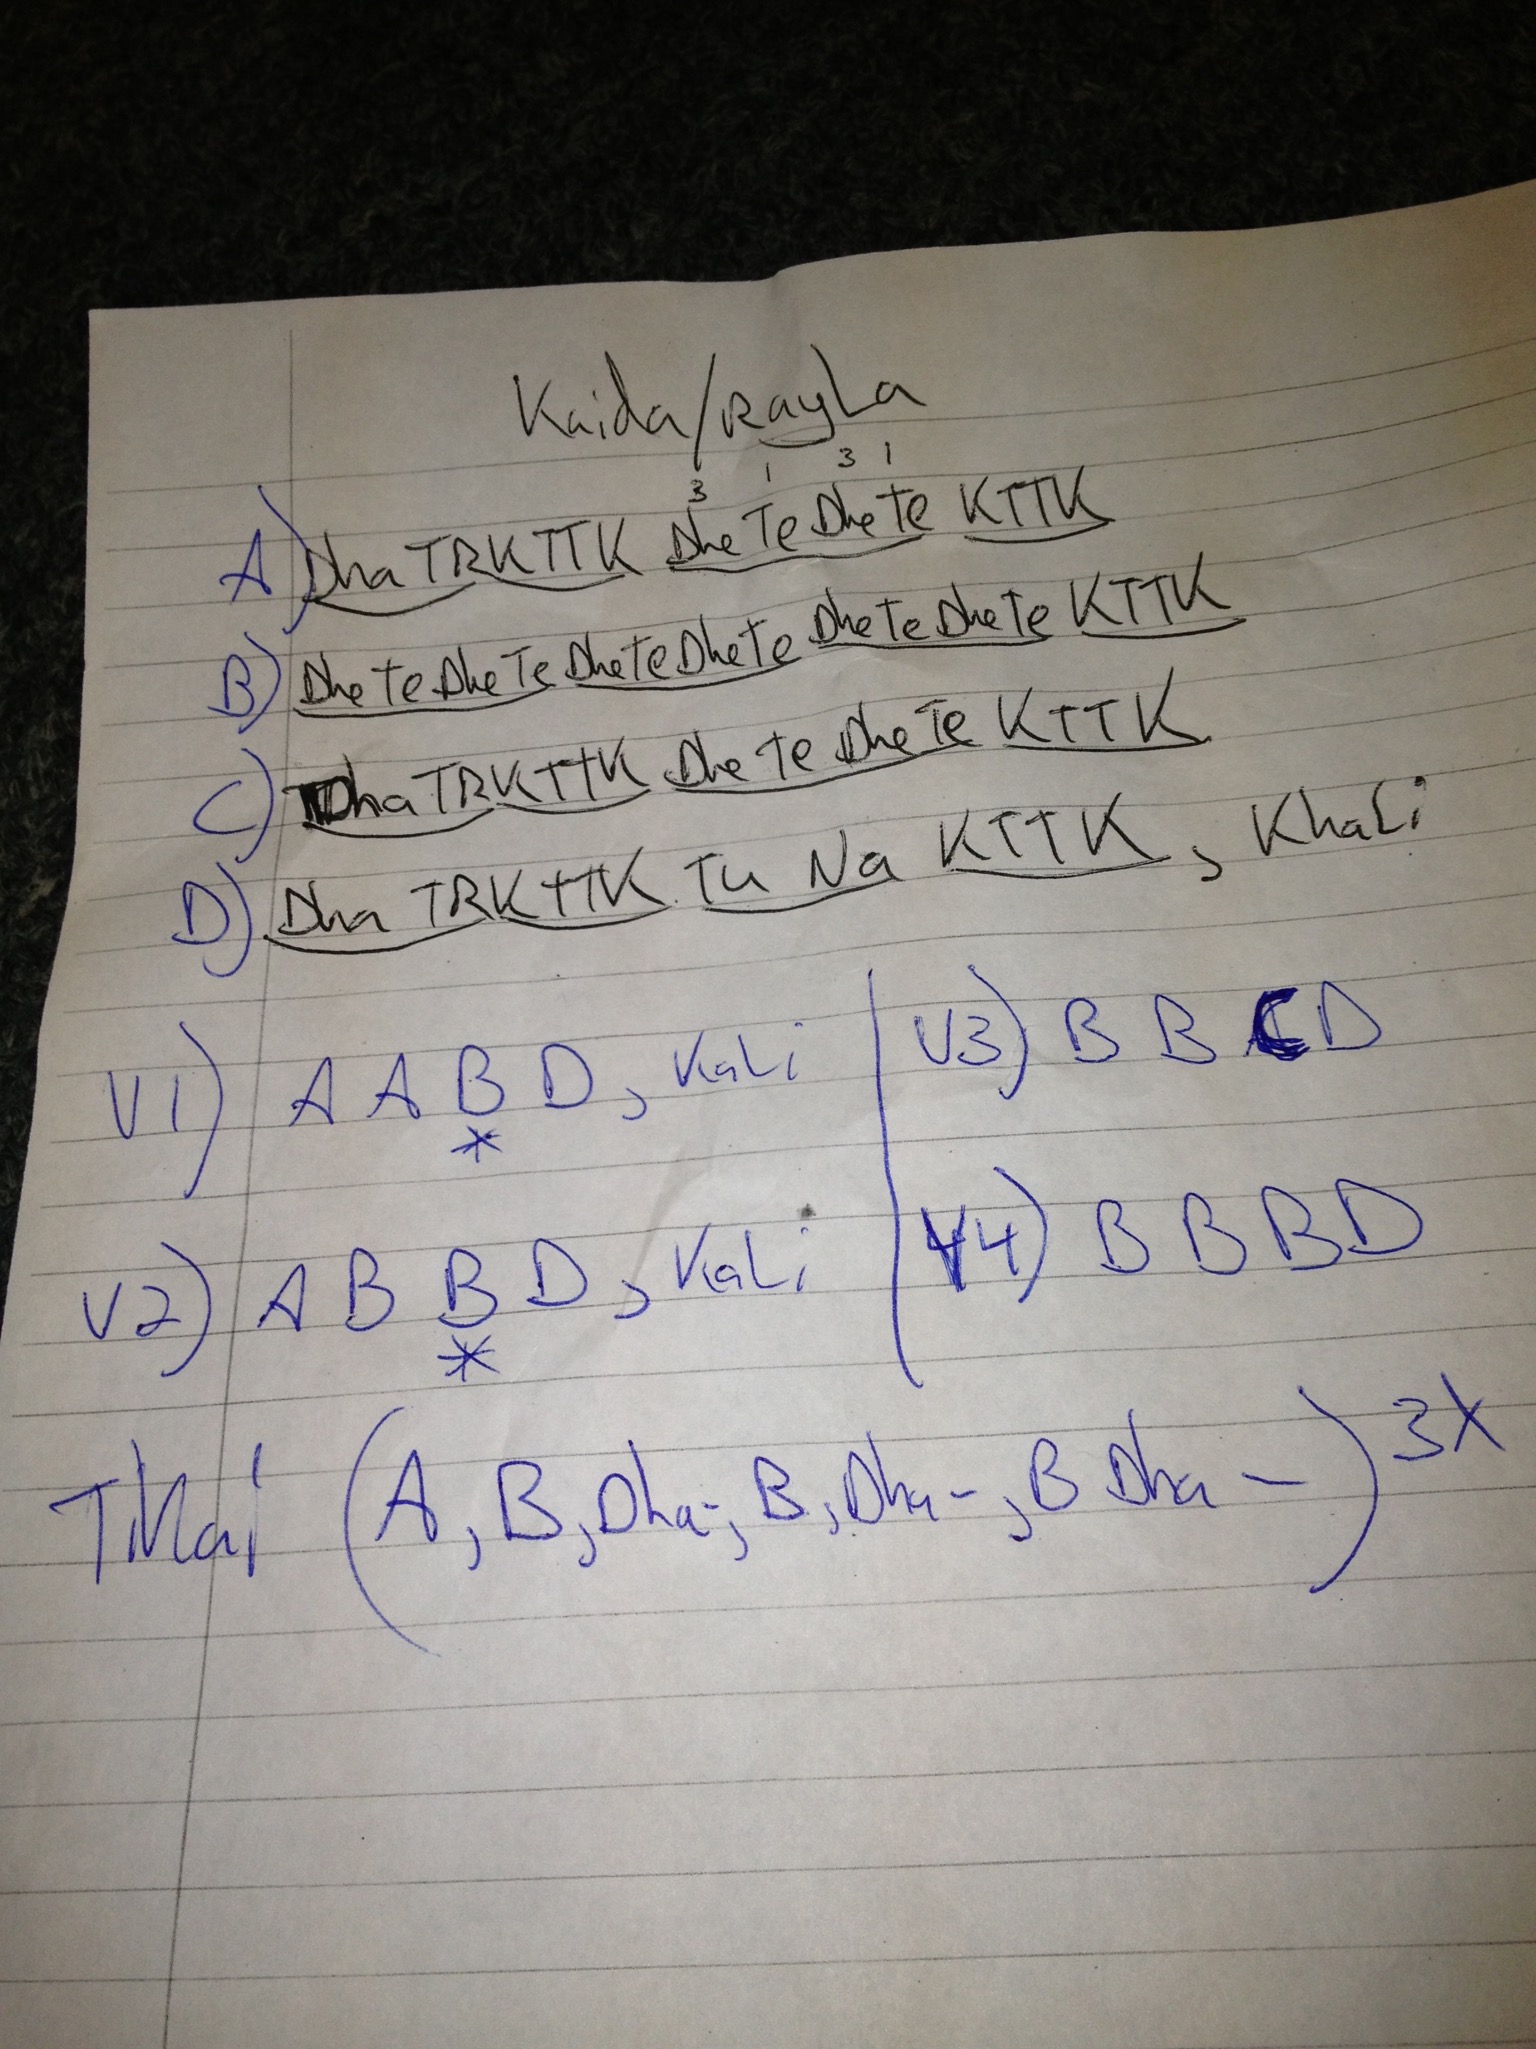 Kaida/RayLa
3 1 3 1
A) Dha TRKTTK DheTeDheTe KTTK
B) DheTeDheTeDheTeDheTe DheTeDheTe KTTK
C) Dha TRKTTK DheTeDheTe KTTK
D) Dha TRKTTK Tu Na KTTK, KhaLi
V1) A A B D, KaLi
*
V2) A B B D, KaLi
*
V3) B B C D
V4) B B B D
Tihai (A, B, Dha-, B, Dha-, B Dha -) 3X